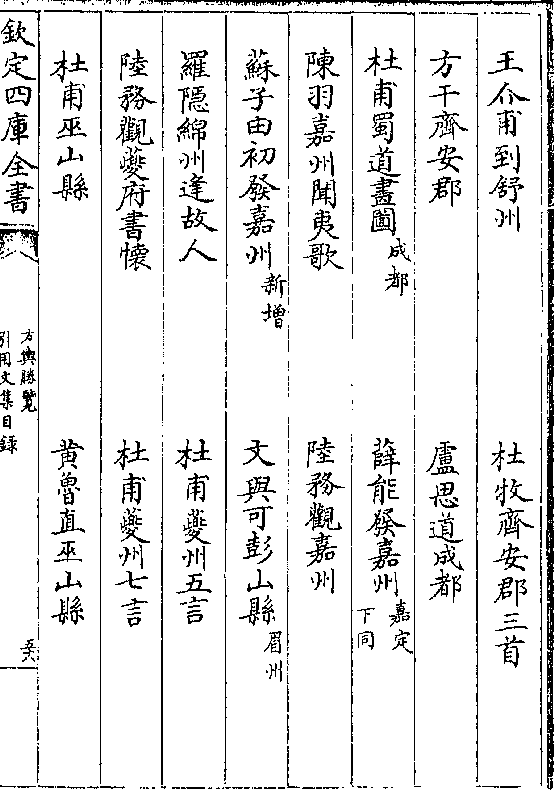 王介甫到舒州　杜牧齊安郡三首
方干齊安郡　盧思道成都
杜甫蜀道畫圖成都　薛能發嘉州嘉定下同
陳羽嘉州聞夷歌　陸務觀嘉州
蘇子由初發嘉州新增　文與可彭山縣眉州
羅隱綿州逢故人　杜甫夔州五言
陸務觀夔府書懷　杜甫夔州七言
杜甫巫山縣　黃魯直巫山縣
欽定四庫全書
方輿勝覽
引用文集目錄